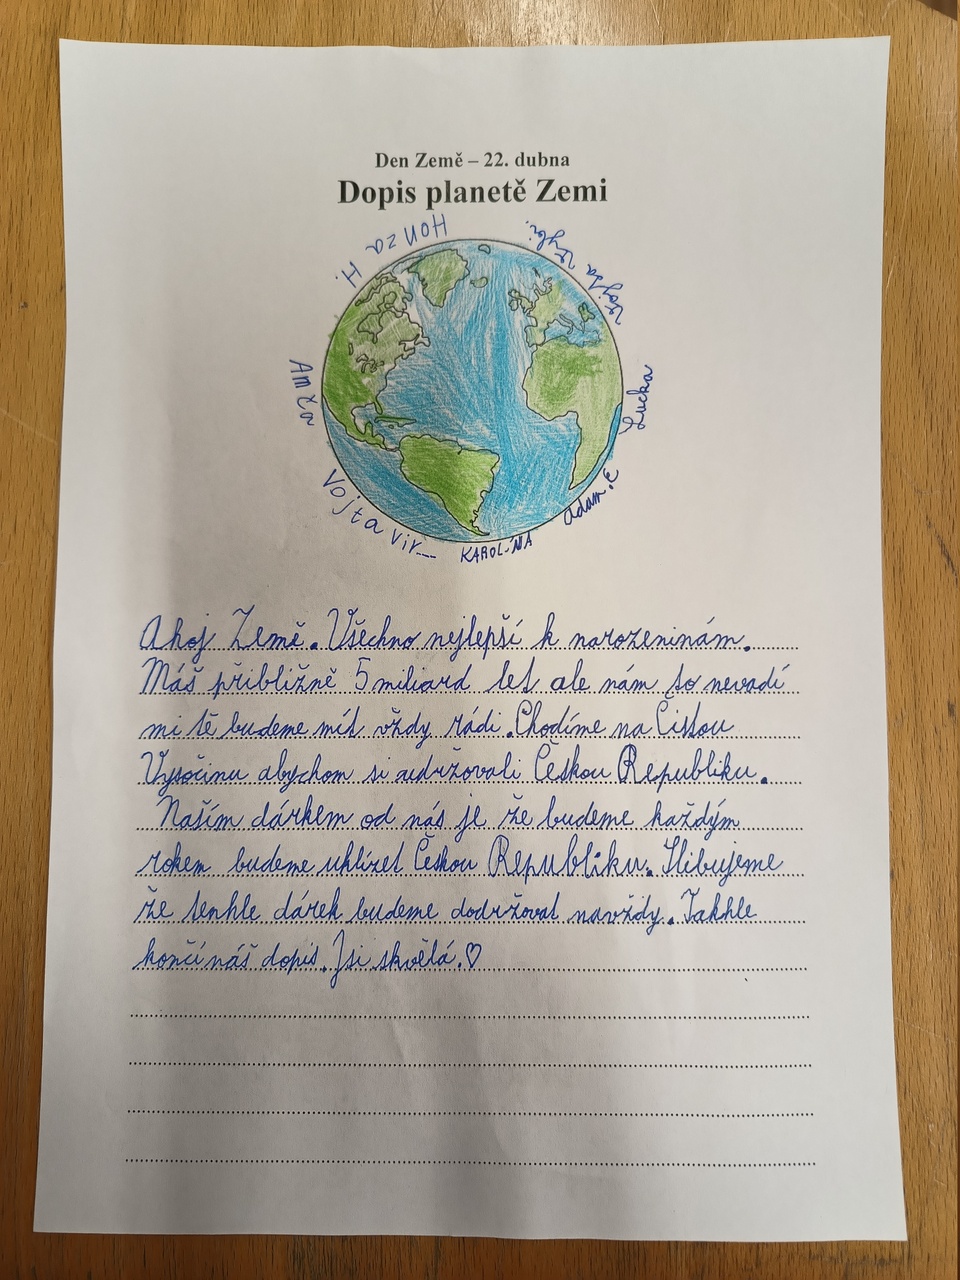 Den Země – 22. dubna
Dopis planetě Zemi
Honza H.
Vojta Vybí.
Anča
Lucka
Adam.E
Vojta Vir_
KAROLÍNA
Ahoj Země. Všechno nejlepší k narozeninám.
Máš přibližně 5 miliard let ale nám to nevadí
mi tě budeme mít vždy rádi. Chodíme na Čistou
Vysočinu abychom si udržovali Českou Republiku.
Naším dárkem od nás je že budeme každým
rokem budeme uklízet Českou Republiku. Slibujeme
že tenhle dárek budeme dodržovat navždy. Takhle
končí náš dopis. Jsi skvělá.♡